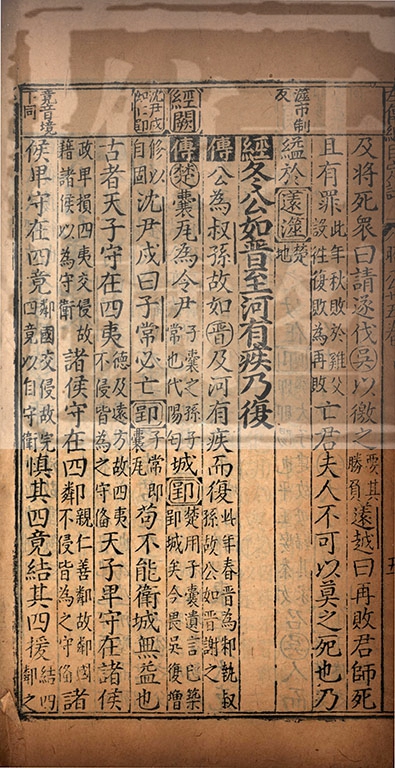 及將死眾曰請遂伐吳以徼之要其勝負薳越曰再敗君師死
且有罪此年秋敗於雞父設往復敗為再敗亡君夫人不可以莫之死也乃
澨市制反
縊於薳澨楚地
經冬公如晉至河有疾乃復
傳公為叔孫故如晉及河有疾而復此年春晉為邾執叔孫故公如晉謝之
經闕
傳楚囊瓦為令尹子囊之孫子常也代陽匄城郢楚用子囊遺言已築郢城矣今畏吳復增
沈尹戌
修以自固沈尹戌曰子常必亡郢子常即囊瓦苟不能衛城無益也
古者天子守在四夷德及遠方故四夷不侵皆為之守備天子卑守在諸侯
政卑損四夷交侵故藉諸侯以為守衛諸侯守在四鄰親仁善鄰故鄰國不侵皆為之守備諸
竟音境下同
侯卑守在四竟鄰國交侵故完四竟以自守衛慎其四竟結其四援結四鄰之